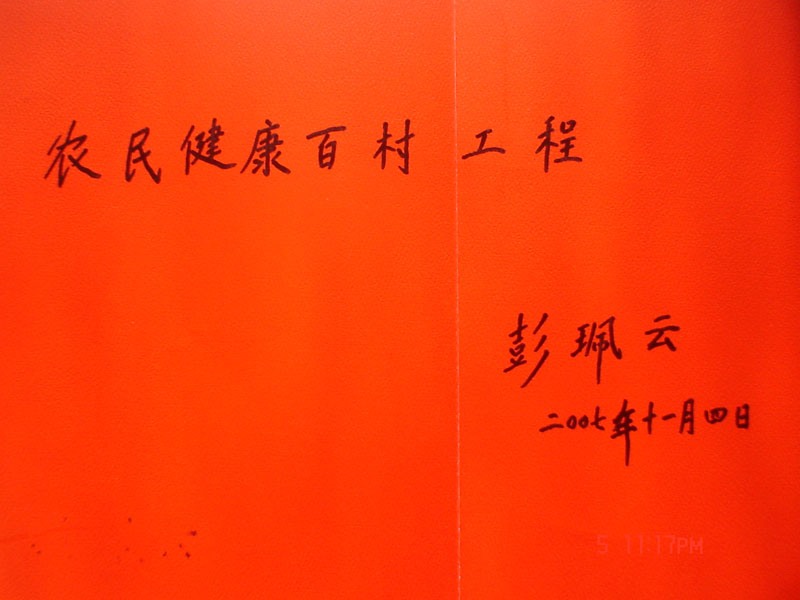 农民健康百村工程
彭珮云
二〇〇七年十一月四日
5 11:17PM